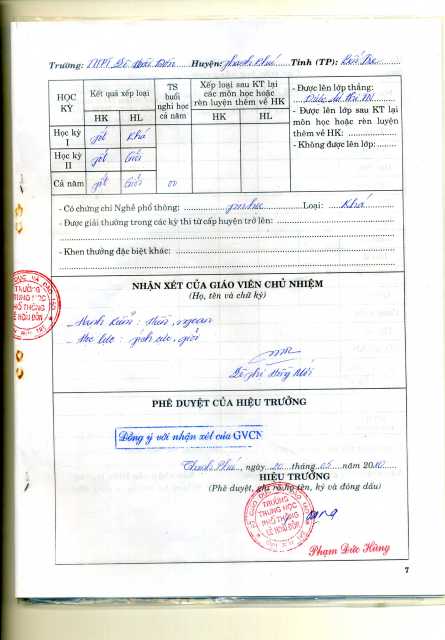 Trường: THPT Lê Hoài Đôn Huyện: Thạnh Phú Tỉnh (TP): Bến Tre
HỌC KỲ
Kết quả xếp loại
TS buổi nghỉ học cả năm
Xếp loại sau KT lại các môn học hoặc rèn luyện thêm về HK
- Được lên lớp thẳng:
- Được lên lớp sau KT lại môn học hoặc rèn luyện thêm về HK:
- Không được lên lớp:
HK HL HK HL
Học kỳ I Tốt Khá
Học kỳ II Tốt Giỏi
Cả năm Tốt Giỏi 00
- Có chứng chỉ Nghề phổ thông: Loại: Khá
- Được giải thưởng trong các kỳ thi từ cấp huyện trở lên:
- Khen thưởng đặc biệt khác:
NHẬN XÉT CỦA GIÁO VIÊN CHỦ NHIỆM
(Họ, tên và chữ ký)
- Hạnh kiểm: ngoan
- Học lực: giỏi
PHÊ DUYỆT CỦA HIỆU TRƯỞNG
Đồng ý với nhận xét của GVCN
Thạnh Phú, ngày 20 tháng 05 năm 2010
HIỆU TRƯỞNG
(Phê duyệt, ghi rõ họ tên, ký và đóng dấu)
TRƯỜNG
TRUNG HỌC
PHỔ THÔNG
LÊ HOÀI ĐÔN
Phạm Đức Hùng
7